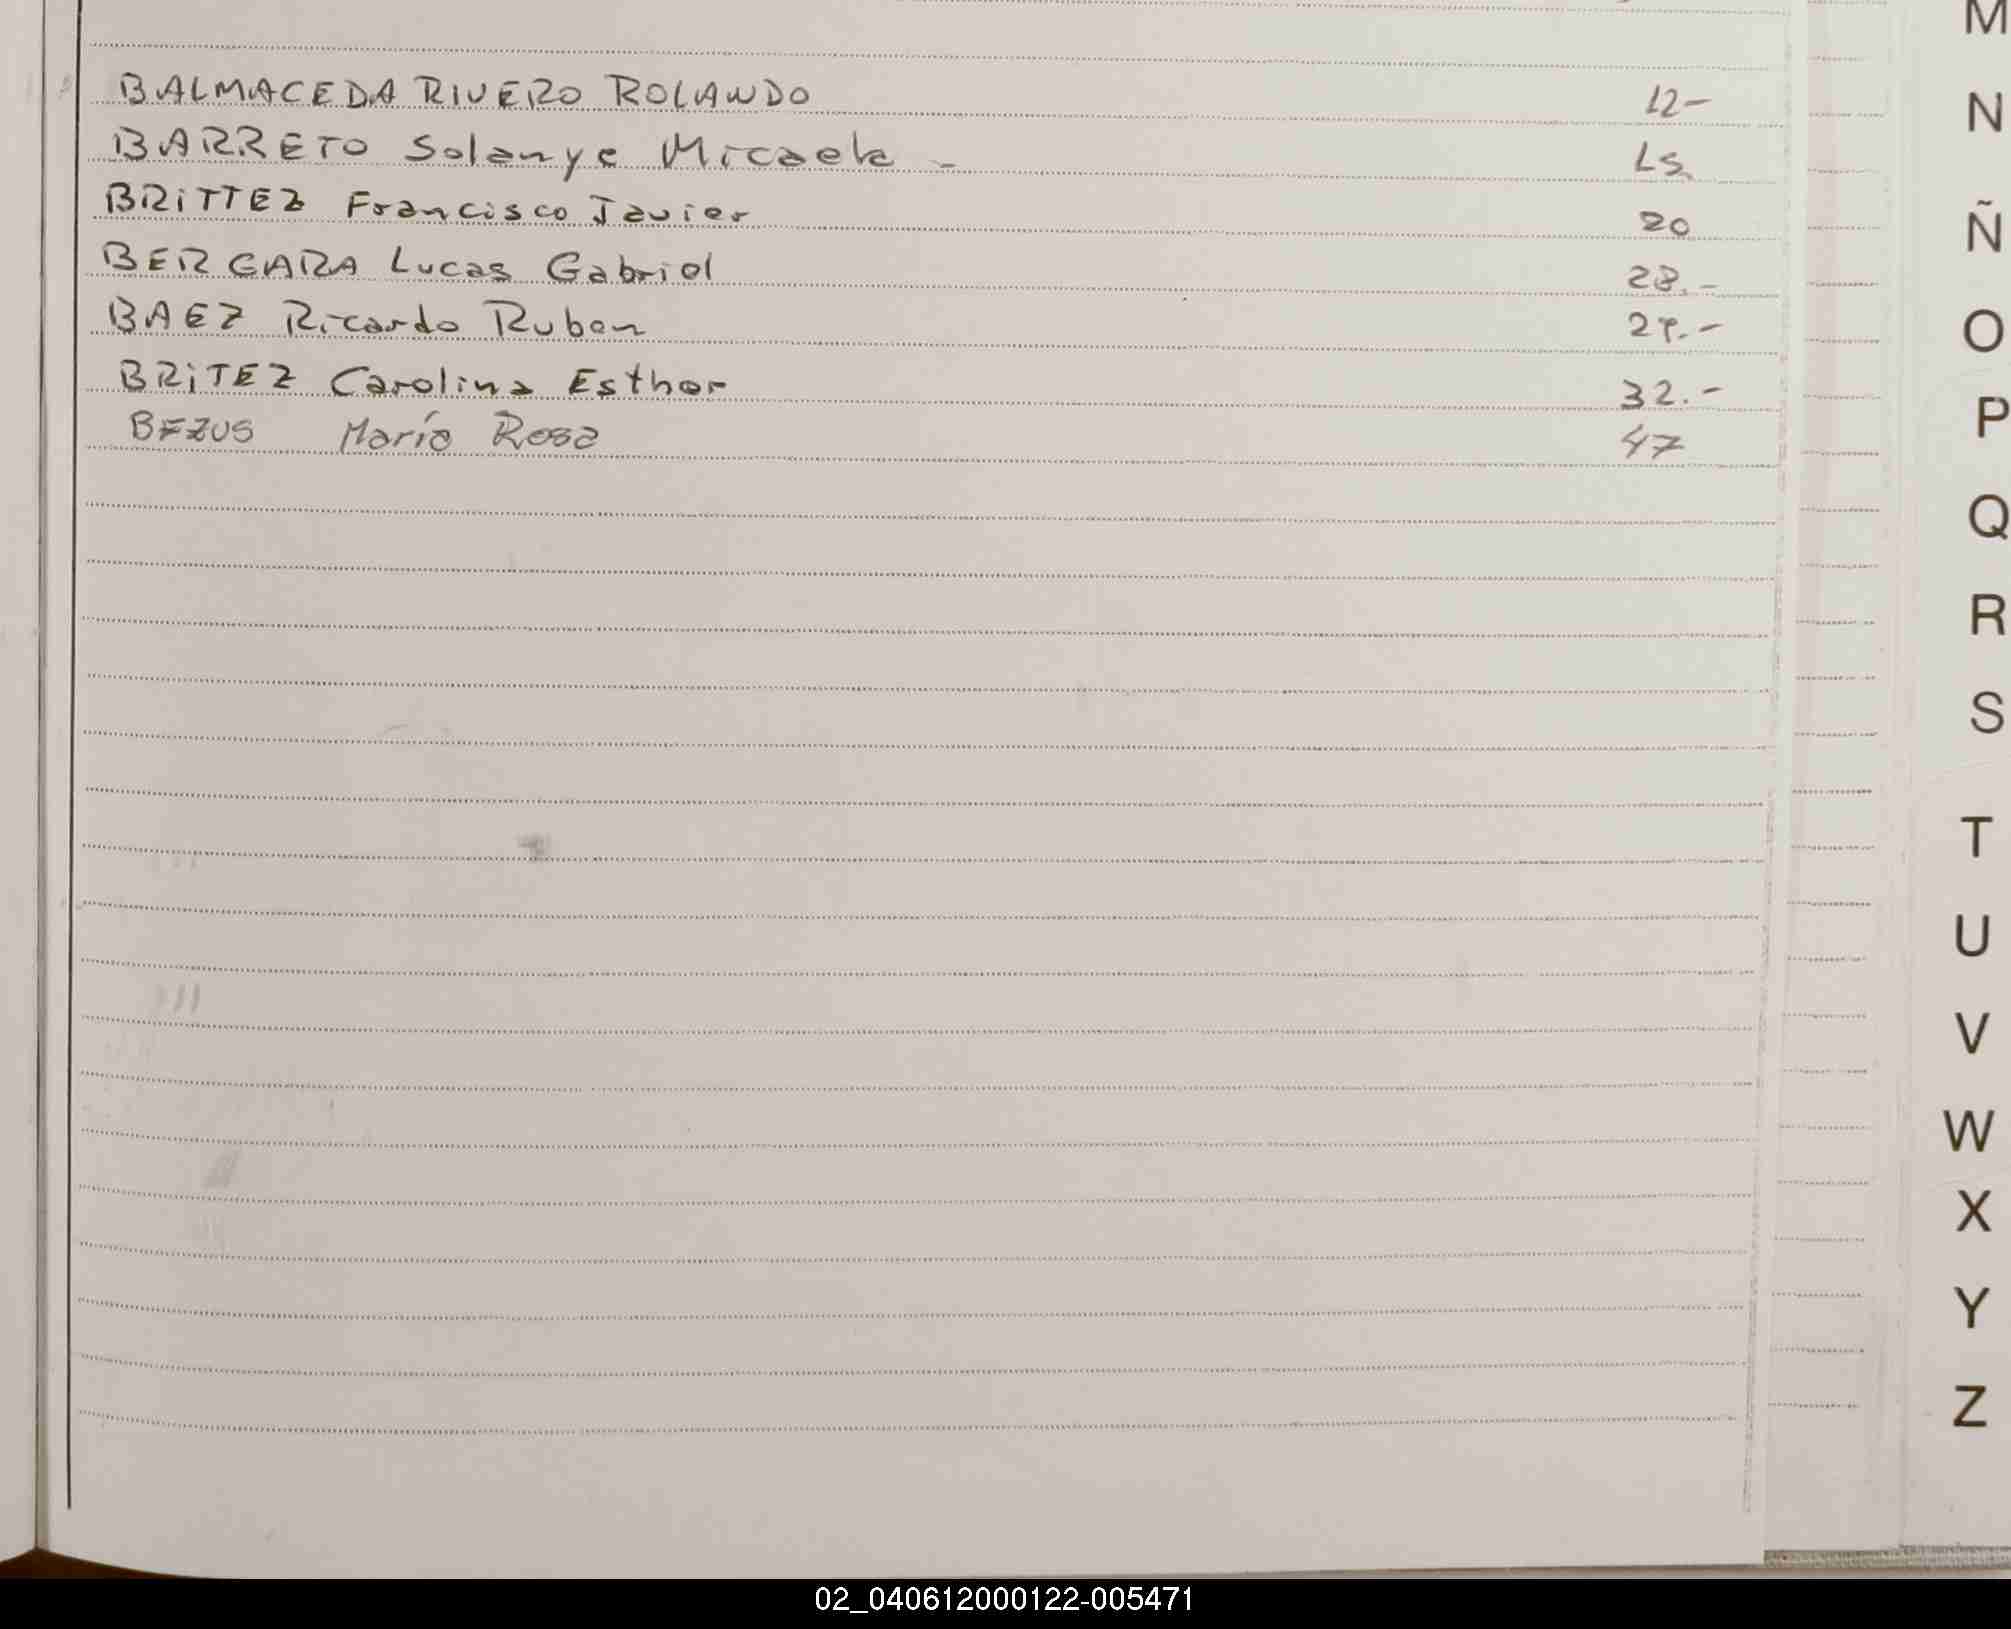 BALMACEDA RIVERO ROLANDO 12-
BARRETO Solanye Micaela - 15
BRITTEZ Francisco Javier 20
BERGARA Lucas Gabriel 28.-
BAEZ Ricardo Ruben 29.-
BRITEZ Carolina Esther 32.-
BEZUS María Rosa 47
M
N
Ñ
O
P
Q
R
S
T
U
V
W
X
Y
Z
02_040612000122-005471